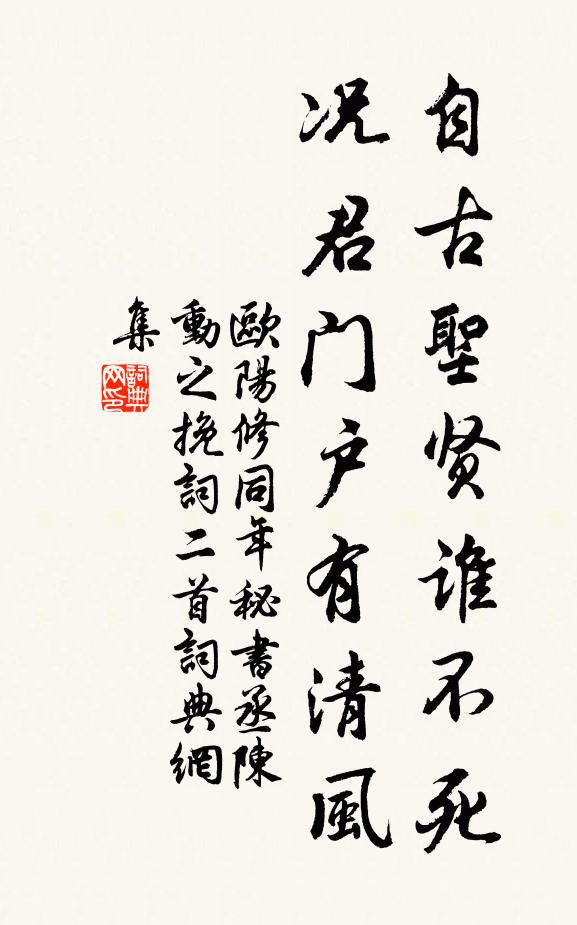 自古聖贤谁不死
况君门户有清風
歐陽修同年秘書丞陳
動之挽詞二首詞典網
集
詞典
网印